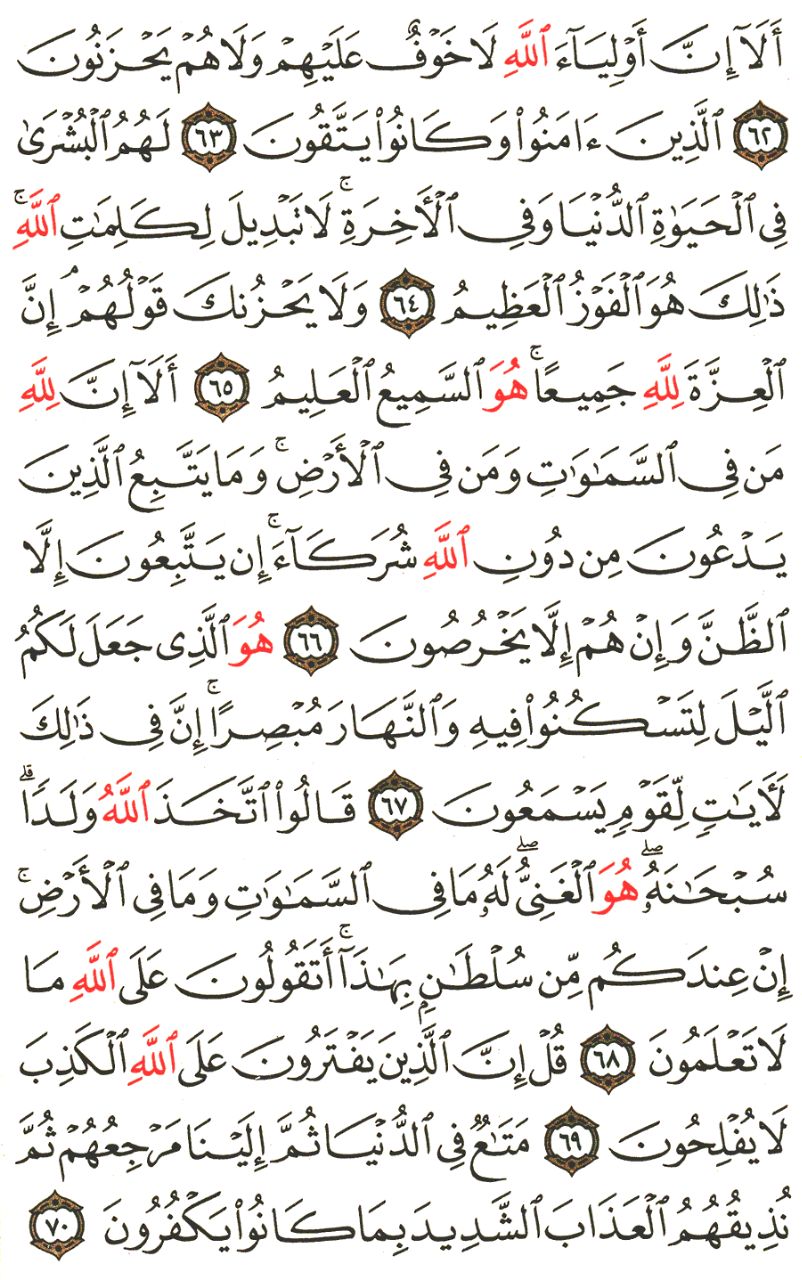 أَلَآ إِنَّ أَوْلِيَآءَ ٱللَّهِ لَا خَوْفٌ عَلَيْهِمْ وَلَا هُمْ يَحْزَنُونَ
٦٢ ٱلَّذِينَ ءَامَنُوا۟ وَكَانُوا۟ يَتَّقُونَ ٦٣ لَهُمُ ٱلْبُشْرَىٰ
فِى ٱلْحَيَوٰةِ ٱلدُّنْيَا وَفِى ٱلْـَٔاخِرَةِ ۚ لَا تَبْدِيلَ لِكَلِمَـٰتِ ٱللَّهِ ۚ
ذَٰلِكَ هُوَ ٱلْفَوْزُ ٱلْعَظِيمُ ٦٤ وَلَا يَحْزُنكَ قَوْلُهُمْ ۘ إِنَّ
ٱلْعِزَّةَ لِلَّهِ جَمِيعًا ۚ هُوَ ٱلسَّمِيعُ ٱلْعَلِيمُ ٦٥ أَلَآ إِنَّ لِلَّهِ
مَن فِى ٱلسَّمَـٰوَٰتِ وَمَن فِى ٱلْأَرْضِ ۗ وَمَا يَتَّبِعُ ٱلَّذِينَ
يَدْعُونَ مِن دُونِ ٱللَّهِ شُرَكَآءَ ۚ إِن يَتَّبِعُونَ إِلَّا
ٱلظَّنَّ وَإِنْ هُمْ إِلَّا يَخْرُصُونَ ٦٦ هُوَ ٱلَّذِى جَعَلَ لَكُمُ
ٱلَّيْلَ لِتَسْكُنُوا۟ فِيهِ وَٱلنَّهَارَ مُبْصِرًا ۚ إِنَّ فِى ذَٰلِكَ
لَـَٔايَـٰتٍ لِّقَوْمٍ يَسْمَعُونَ ٦٧ قَالُوا۟ ٱتَّخَذَ ٱللَّهُ وَلَدًا ۗ
سُبْحَـٰنَهُۥ ۖ هُوَ ٱلْغَنِىُّ ۖ لَهُۥ مَا فِى ٱلسَّمَـٰوَٰتِ وَمَا فِى ٱلْأَرْضِ ۚ
إِنْ عِندَكُم مِّن سُلْطَـٰنٍۭ بِهَـٰذَآ ۚ أَتَقُولُونَ عَلَى ٱللَّهِ مَا
لَا تَعْلَمُونَ ٦٨ قُلْ إِنَّ ٱلَّذِينَ يَفْتَرُونَ عَلَى ٱللَّهِ ٱلْكَذِبَ
لَا يُفْلِحُونَ ٦٩ مَتَـٰعٌ فِى ٱلدُّنْيَا ثُمَّ إِلَيْنَا مَرْجِعُهُمْ ثُمَّ
نُذِيقُهُمُ ٱلْعَذَابَ ٱلشَّدِيدَ بِمَا كَانُوا۟ يَكْفُرُونَ ٧٠